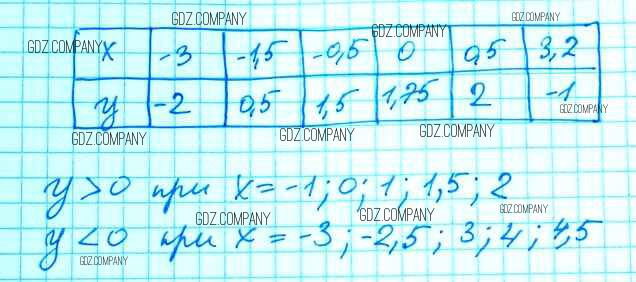 GDZ.COMPANY GDZ.COMPANY
GDZ.COMPANY GDZ.COMPANY
x -3 -1,5 -0,5 0 0,5 3,2
y -2 0,5 1,5 1,75 2 -1
GDZ.COMPANY
GDZ.COMPANY GDZ.COMPANY GDZ.COMPANY
y > 0 при x = -1; 0; 1; 1,5; 2
GDZ.COMPANY GDZ.COMPANY GDZ.COMPANY
y < 0 при x = -3; -2,5; 3; 4; 4,5
GDZ.COMPANY